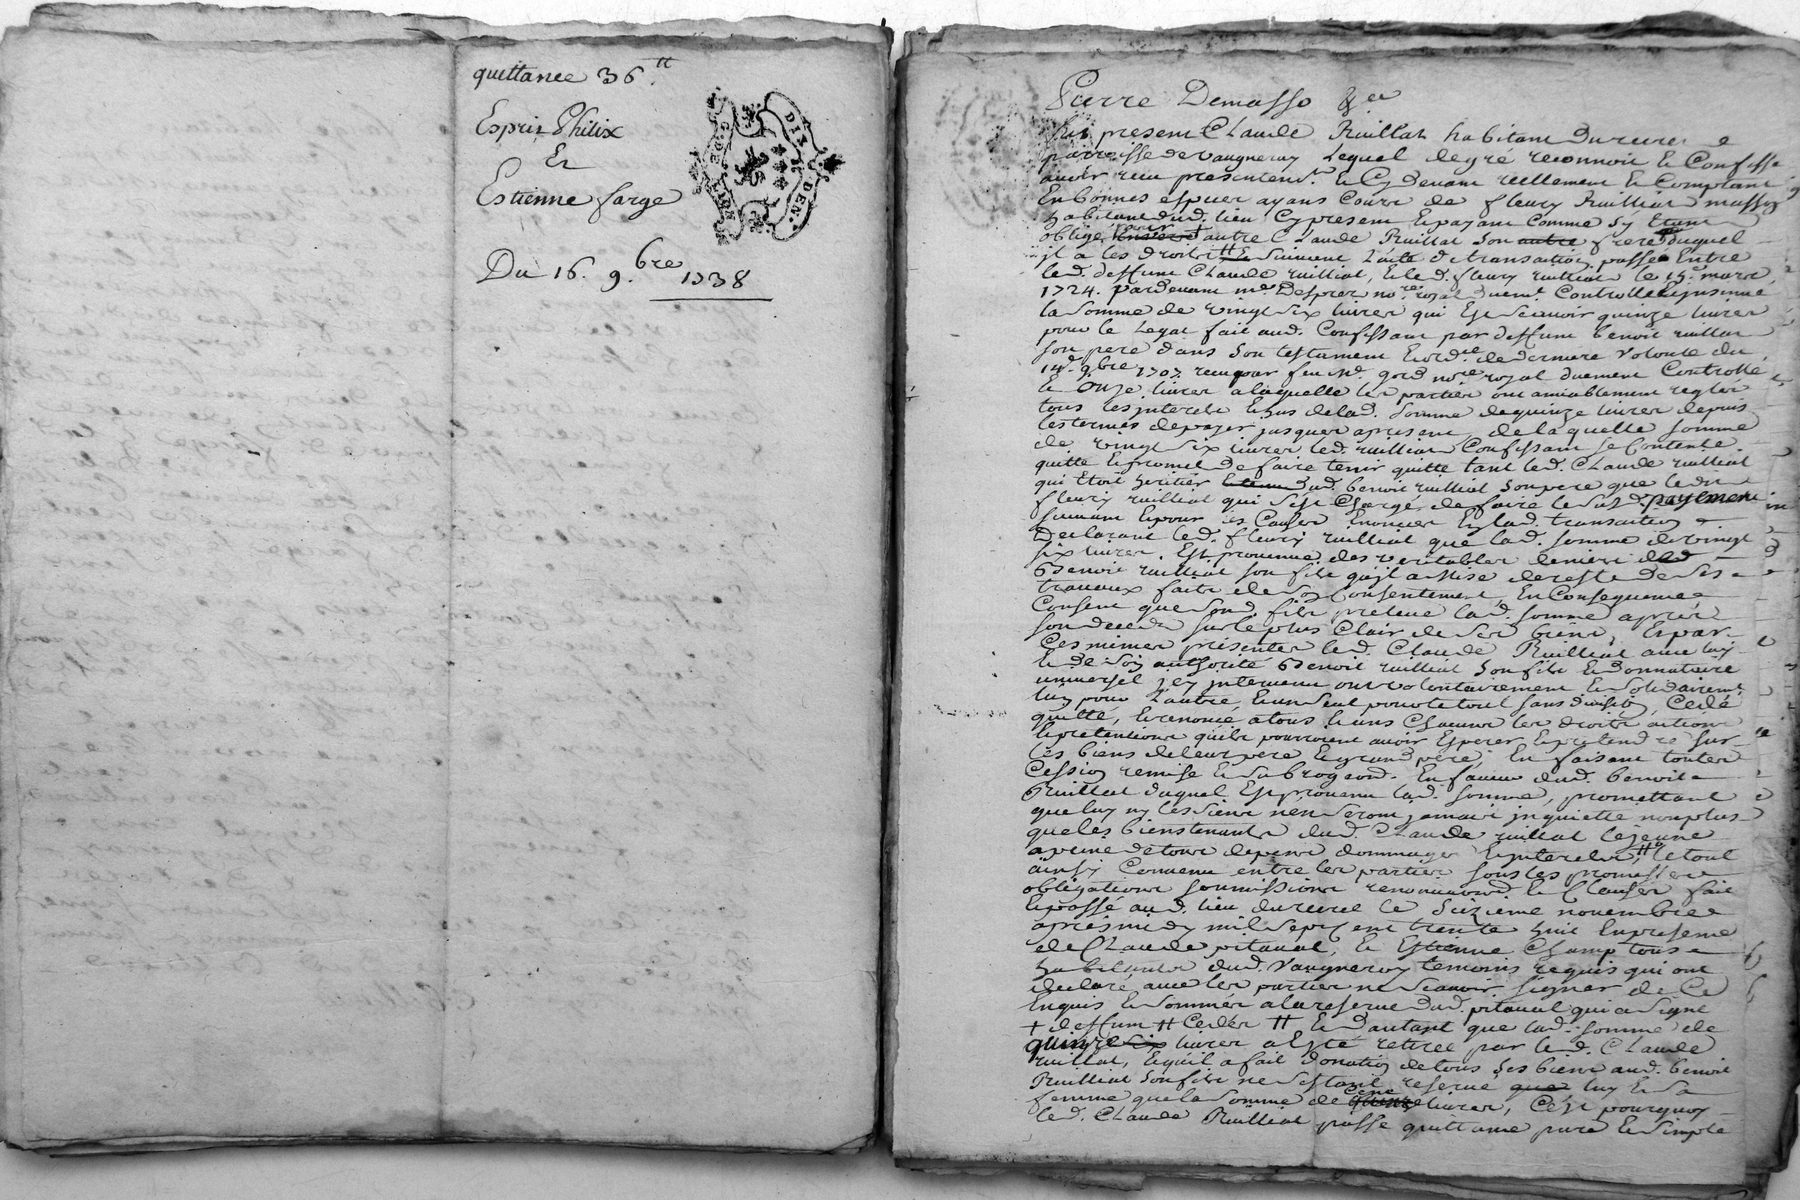 quittance 36.tt
Esprit Philix
Et
Estienne farge
Du 16. 9.bre 1738
G. DE LYON
DIX DEN.
Pierre Demasso &ca
fut present Claude Ruillat habitant du
parroisse de Vaugneray Lequel de gré reconnoit et Confesse
avoir receu presentement et Cy devant reellement et Comptant
En bonnes especes ayans Cours de fleury Ruilliat
habitant dud. lieu Cy present Et payant Comme sy Etant
obligé autre Claude Ruillat son autre frere duquel
il a les droits tt Et suivant lacte de transaction passée Entre
led. deffunt Claude ruilliat, Et led. fleury ruilliat le 15e. mars
1724. pardevant me. Desprez no.re royal duemt. Controllé Et insinué
la Somme de vingt six livres qui Est scavoir quinze livres
pour le Legat fait aud. Confessant par deffunt benoit ruillat
son pere dans son testament Et ord.ce de derniere volonté du
14e. 9bre 1707 receu par feu Me. gord no.re royal duement Controllé
Et Onze livres a laquelle les parties ont amiablement reglés
tous les interets Echus de lad. somme de quinze livres depuis
les termes de payer jusques a present, de laquelle somme
de vingt six livres led. ruilliat Confessant se Contente
quitte Et promet de faire tenir quitte tant led. Claude ruilliat
qui Etoit heritier dud. benoit ruilliat son pere que led.
fleury ruilliat qui sest Chargé de faire le susd. payement
suivant Et pour les Causes Enoncées En lad. transaction
Declarant led. fleury ruilliat que lad. somme de vingt
six livres. Est provenue des veritables deniers dud.
Benoit ruilliat son fils quil a Mise de reste de ses
travaux faits de son Consentement, En Consequence
Consent que sond. fils preleve lad. somme apres
son deceds sur le plus Clair de ses biens, Et par
Ces mêmes presentes led. Claude Ruilliat avec luy
Et de son authorité Benoit ruilliat son fils Et donnataire
universel icy intervenu ont volontairement Et solidairemt.
lun pour Lautre, Et un seul pour le tout sans division, Cedé
quitté, Et renoncé a tous Et uns Chacuns les droits actions
Et pretentions quils pourroient avoir Esperer Et pretendre sur
les biens de leur pere Et grand pere, En faisant toutes
Cession remise Et subrogaons. En faveur dud. benoit
Ruillat duquel Est provenu lad. somme, promettant
que luy ny les siens nen seront jamais inquietté non plus
que les bienstenants dud. Claude ruillat le jeune
a peine de tous depens dommages Et interets, tt le tout
ainsy Convenu entre les parties sous les promesses
obligations soumissions renonciaons. Et Clauses fait
Et passé aud. lieu du le seizieme novembre
apres midy mil sept cent trente huit En presence
de Claude pitaval, Et Estienne Champ tous
habitants dud. Vaugneray temoins requis qui ont
declaré avec les parties ne scavoir signer de Ce
Enquis Et sommés a la reserve dud. pitaval qui a signé
+ deffunt tt Cedés tt Et Dautant que lad. somme de
quinze six livres a Eté retirée par led. Claude
ruillat, Et quil a fait donation de tous ses biens aud. benoit
Ruilliat son fils ne sestant reservé que luy Et sa
femme que la somme de Cent quinze livres, C'est pourquoy
led. Claude Ruilliat passe quittance pure Et simple